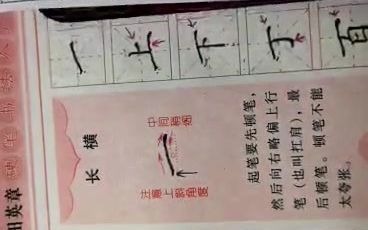 田英章
长横
一
土
下
丁
百
中间稍细
注意上斜角度
起笔要先顿笔，
然后向右略偏上行
笔（也叫扛肩），最
后顿笔。顿笔不能
太夸张。